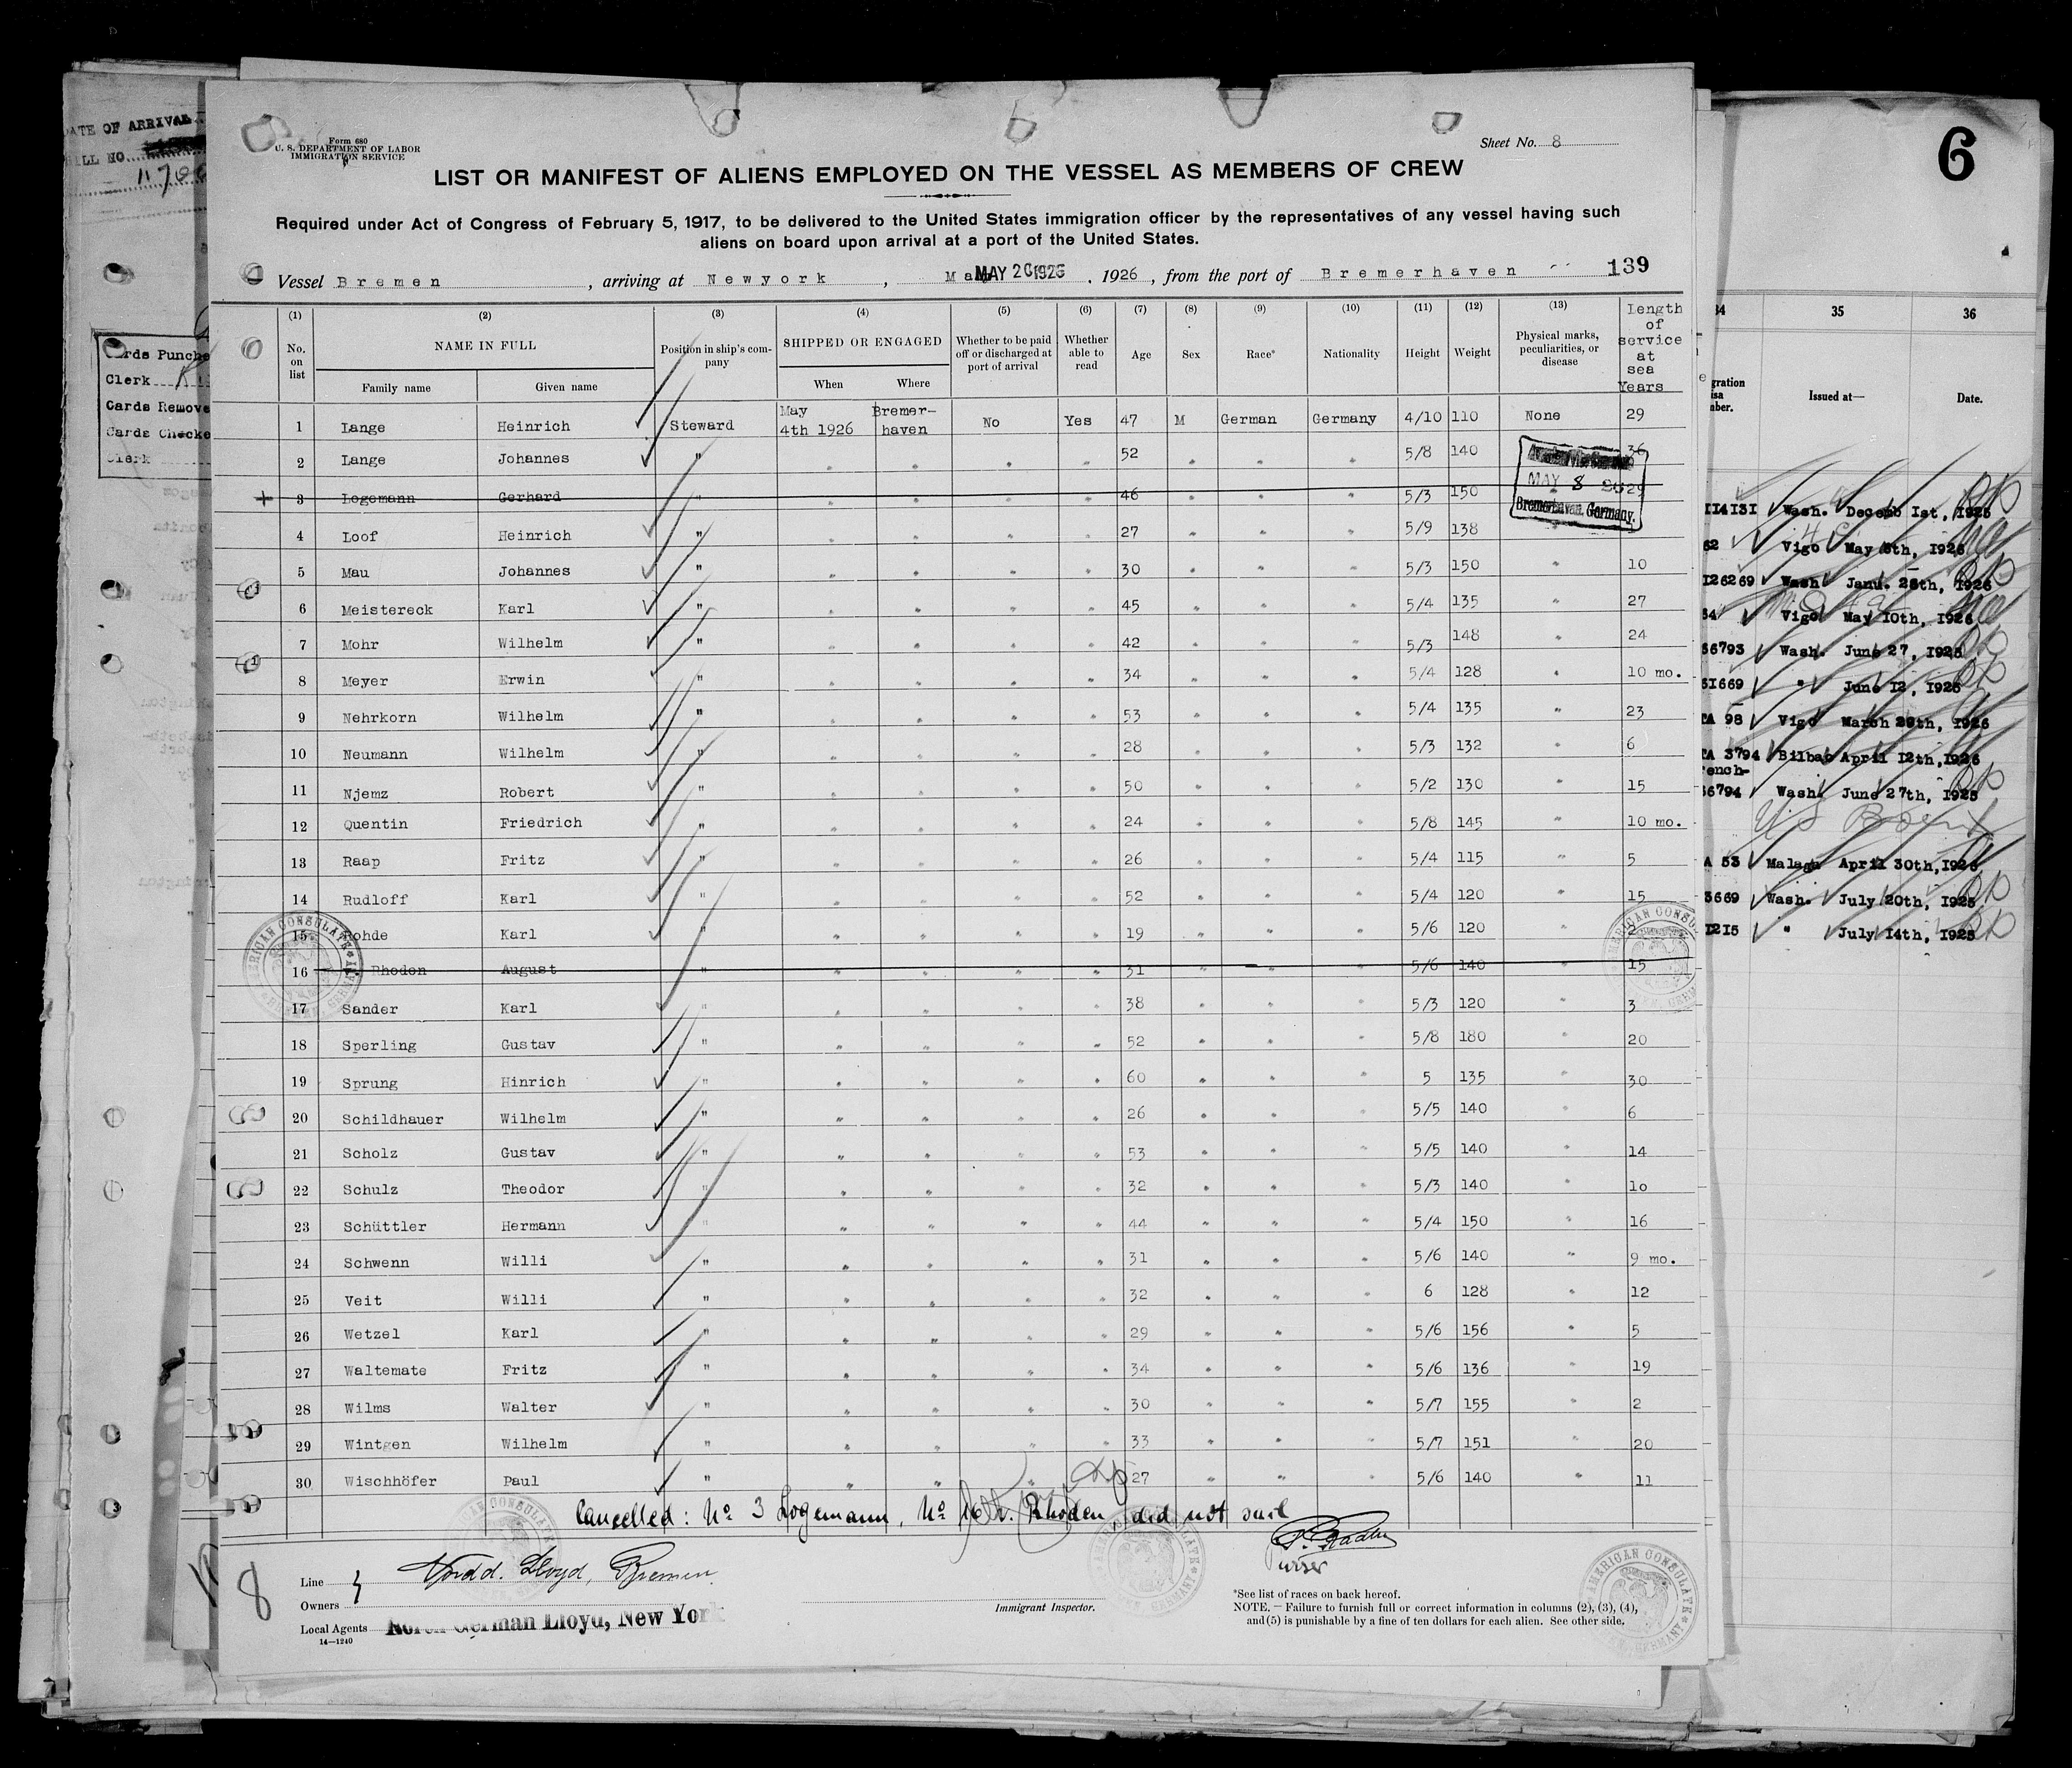 Form 680
U. S. DEPARTMENT OF LABOR
IMMIGRATION SERVICE
Sheet No. 8
LIST OR MANIFEST OF ALIENS EMPLOYED ON THE VESSEL AS MEMBERS OF CREW
Required under Act of Congress of February 5, 1917, to be delivered to the United States immigration officer by the representatives of any vessel having such
aliens on board upon arrival at a port of the United States.
Vessel Bremen, arriving at Newyork, MAY 20 1926, 1926, from the port of Bremerhaven 139
(1) (2) (3) (4) (5) (6) (7) (8) (9) (10) (11) (12) (13)
No. on list NAME IN FULL Family name Given name Position in ship's company SHIPPED OR ENGAGED When Where Whether to be paid off or discharged at port of arrival Whether able to read Age Sex Race* Nationality Height Weight Physical marks, peculiarities, or disease length of service at sea Years
1 Lange Heinrich Steward May 4th 1926 Bremer-haven No Yes 47 M German Germany 4/10 110 None 29
2 Lange Johannes " " " " " 52 " " " 5/8 140 36
3 Logemann Gerhard " " " " " 46 " " " 5/3 150 " 29
4 Loof Heinrich " " " " " 27 " " " 5/9 138 "
5 Mau Johannes " " " " " 30 " " " 5/3 150 " 10
6 Meistereck Karl " " " " " 45 " " " 5/4 135 " 27
7 Mohr Wilhelm " " " " " 42 " " " 5/3 148 " 24
8 Meyer Erwin " " " " " 34 " " " 5/4 128 " 10 mo.
9 Nehrkorn Wilhelm " " " " " 53 " " " 5/4 135 " 23
10 Neumann Wilhelm " " " " " 28 " " " 5/3 132 " 6
11 Njemz Robert " " " " " 50 " " " 5/2 130 " 15
12 Quentin Friedrich " " " " " 24 " " " 5/8 145 " 10 mo.
13 Raap Fritz " " " " " 26 " " " 5/4 115 " 5
14 Rudloff Karl " " " " " 52 " " " 5/4 120 " 15
15 Rohde Karl " " " " " 19 " " " 5/6 120 " 2
16 Rhoden August " " " " " 31 " " " 5/6 140 " 15
17 Sander Karl " " " " " 38 " " " 5/3 120 " 3
18 Sperling Gustav " " " " " 52 " " " 5/8 180 " 20
19 Sprung Hinrich " " " " " 60 " " " 5 135 " 30
20 Schildhauer Wilhelm " " " " " 26 " " " 5/5 140 " 6
21 Scholz Gustav " " " " " 53 " " " 5/5 140 " 14
22 Schulz Theodor " " " " " 32 " " " 5/3 140 " lo
23 Schüttler Hermann " " " " " 44 " " " 5/4 150 " 16
24 Schwenn Willi " " " " " 31 " " " 5/6 140 " 9 mo.
25 Veit Willi " " " " " 32 " " " 6 128 " 12
26 Wetzel Karl " " " " " 29 " " " 5/6 156 " 5
27 Waltemate Fritz " " " " " 34 " " " 5/6 136 " 19
28 Wilms Walter " " " " " 30 " " " 5/7 155 " 2
29 Wintgen Wilhelm " " " " " 33 " " " 5/7 151 " 20
30 Wischhöfer Paul " " " " " 27 " " " 5/6 140 " 11
MAY 8
Bremerhaven, Germany.
AMERICAN CONSULATE
Cancelled: No 3 Logemann, No 16 v. Rhoden, did not sail
Purser
8
Line
Owners
Nordd. Lloyd, Bremen.
Local Agents North German Lloyd, New York
14—1240
Immigrant Inspector.
*See list of races on back hereof.
NOTE.—Failure to furnish full or correct information in columns (2), (3), (4),
and (5) is punishable by a fine of ten dollars for each alien. See other side.
DATE OF ARRIVAL
Cards Punche
Clerk
Cards Remove
Cards Checke
Clerk
6
34 35 36
Issued at— Date.
114131 Wash. Decemb 1st, 1925
62 Vigo May 8th, 1926
126269 Wash. Janu. 26th, 1926
64 Vigo May 10th, 1926
66793 Wash. June 27, 1925
61669 " June 12, 1925
TA 98 Vigo March 29th, 1926
TA 3794 Bilbao April 12th, 1926
rench-
6794 Wash. June 27th, 1925
A 53 Malaga April 30th, 1926
3669 Wash. July 20th, 1925
1215 " July 14th, 1925